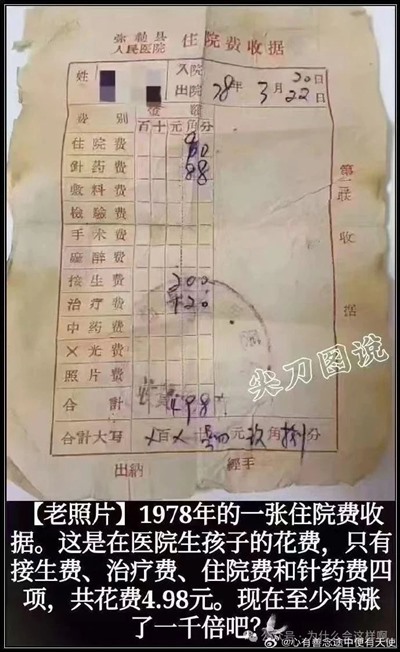 弥勒县
人民医院
住院费收据
姓
入院
出院
78年3月20日
22日
费别
金额
百十元角分
住院费 90
针药费 88
敷料费
检验费
手术费
麻醉费
接生费 200
治疗费 120
中药费
X光费
照片费
合計 498
合計大写 X百X十肆元玖角捌分
出納
經手
第一联收据
尖刀图说
【老照片】1978年的一张住院费收
据。这是在医院生孩子的花费，只有
接生费、治疗费、住院费和针药费四
项，共花费4.98元。现在至少得涨
了一千倍吧？
公众号：为什么会这样呢
@心有善念途中便有天使